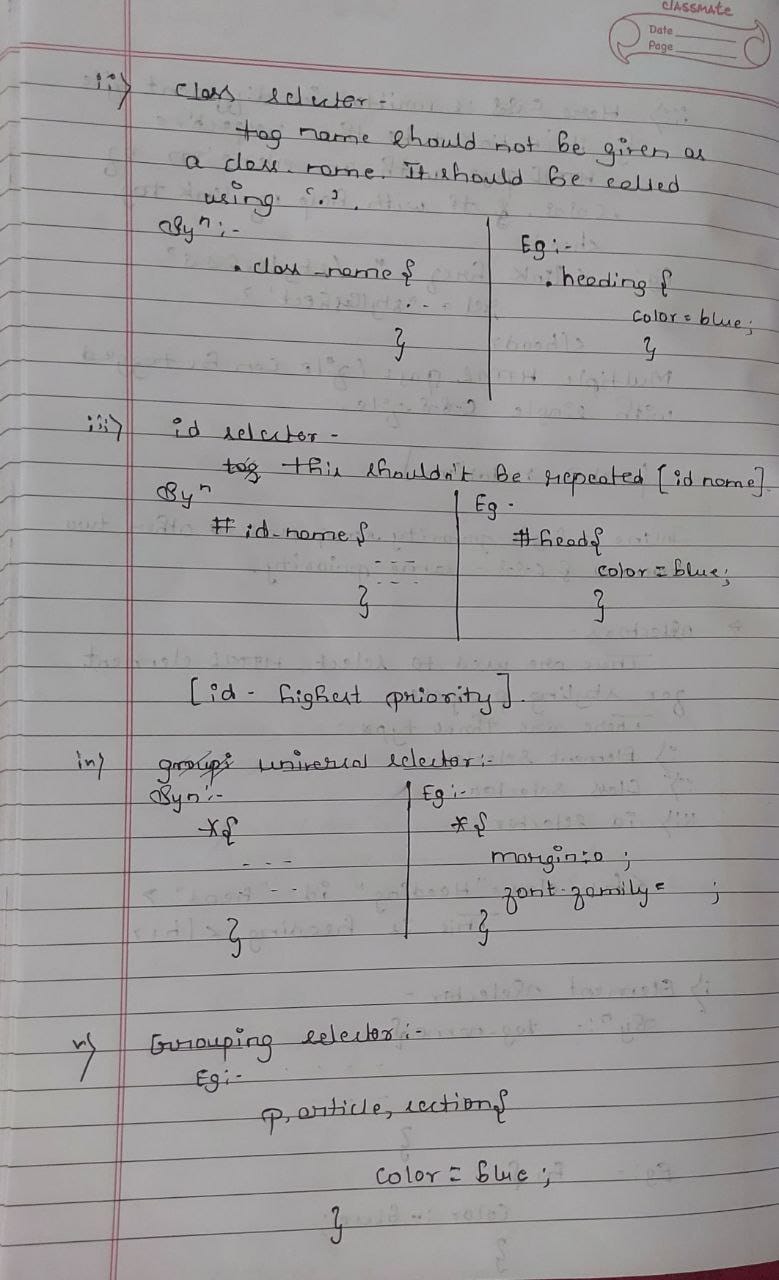 classmate
Date
Page
ii) class selector -
tag name should not be given as
a class name. It should be called
using '.'.
Synⁿ :-
. class-name {
. . .
}
Eg :-
. heading {
color = blue;
}
iii) id selector -
tag this shouldn't be repeated [id name]
Synⁿ
# id-name {
- - -
- - -
}
Eg -
#head{
color = blue;
}
[id - highest priority].
iv) groups universal selector :-
Syn :-
*{
- - -
- - -
}
Eg :-
*{
margin=0 ;
font-family= ;
}
v) Grouping selector :-
Eg :-
p, article, section{
color = blue ;
}